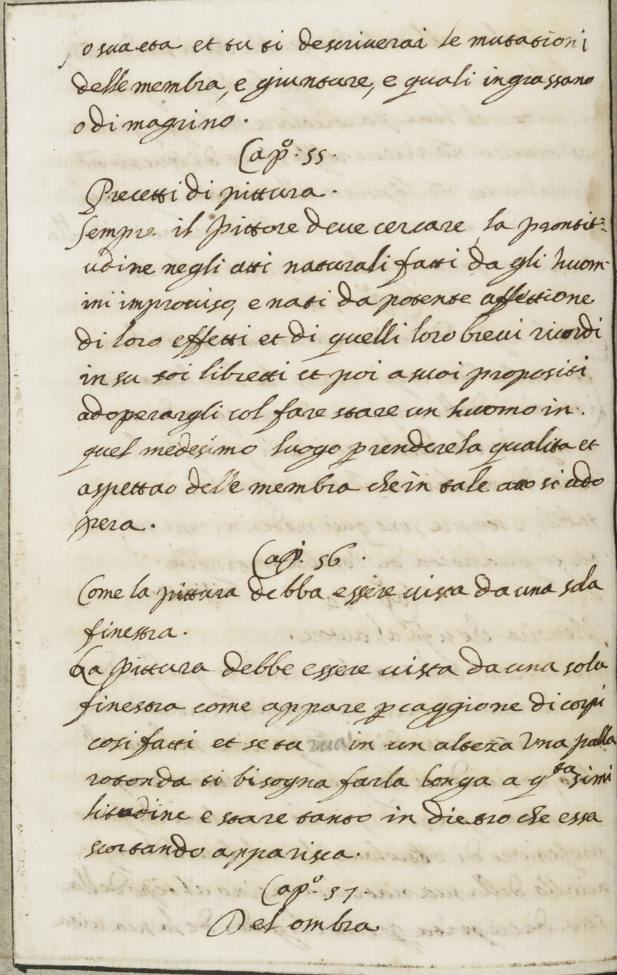 o sua eta et tu ti descriuerai le mutationi
delle membra, e giunture, e quali ingrassano
o dimagrino.
Capº. 55.
Precetti di pittura.
Sempre il Pittore deue cercare la prontit=
udine negli atti naturali fatti da gli huom=
ini improuiso, e nati da potente affettione
di loro effetti et di quelli loro breui ricordi
in su soi libretti et poi a suoi propositi
adoperargli col fare stare un huomo in.
quel medesimo luogo p rendere la qualita et
aspettao dele membra che in tale atto si ado
pera.
Capº. 56.
Come la pittura debba essere uista da una sola
finestra.
La Pittura debbe essere uista da una sola
finestra come appare p caggione di corpi
cosi fatti et se tu uuoi in un alteza Una palla
rotonda ti bisogna farla longa a qsta simi
litudine e stare tanto in dietro che essa
scortando apparisca.
Capº. 57.
Del ombra